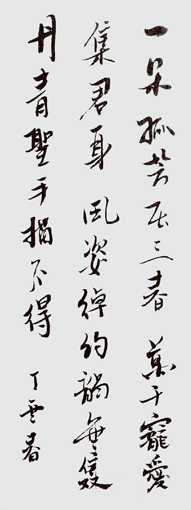 一朵孤芳居三春 万千寵愛
集君身 風姿綽約韻無雙
丹青聖手描不得
丁雲春